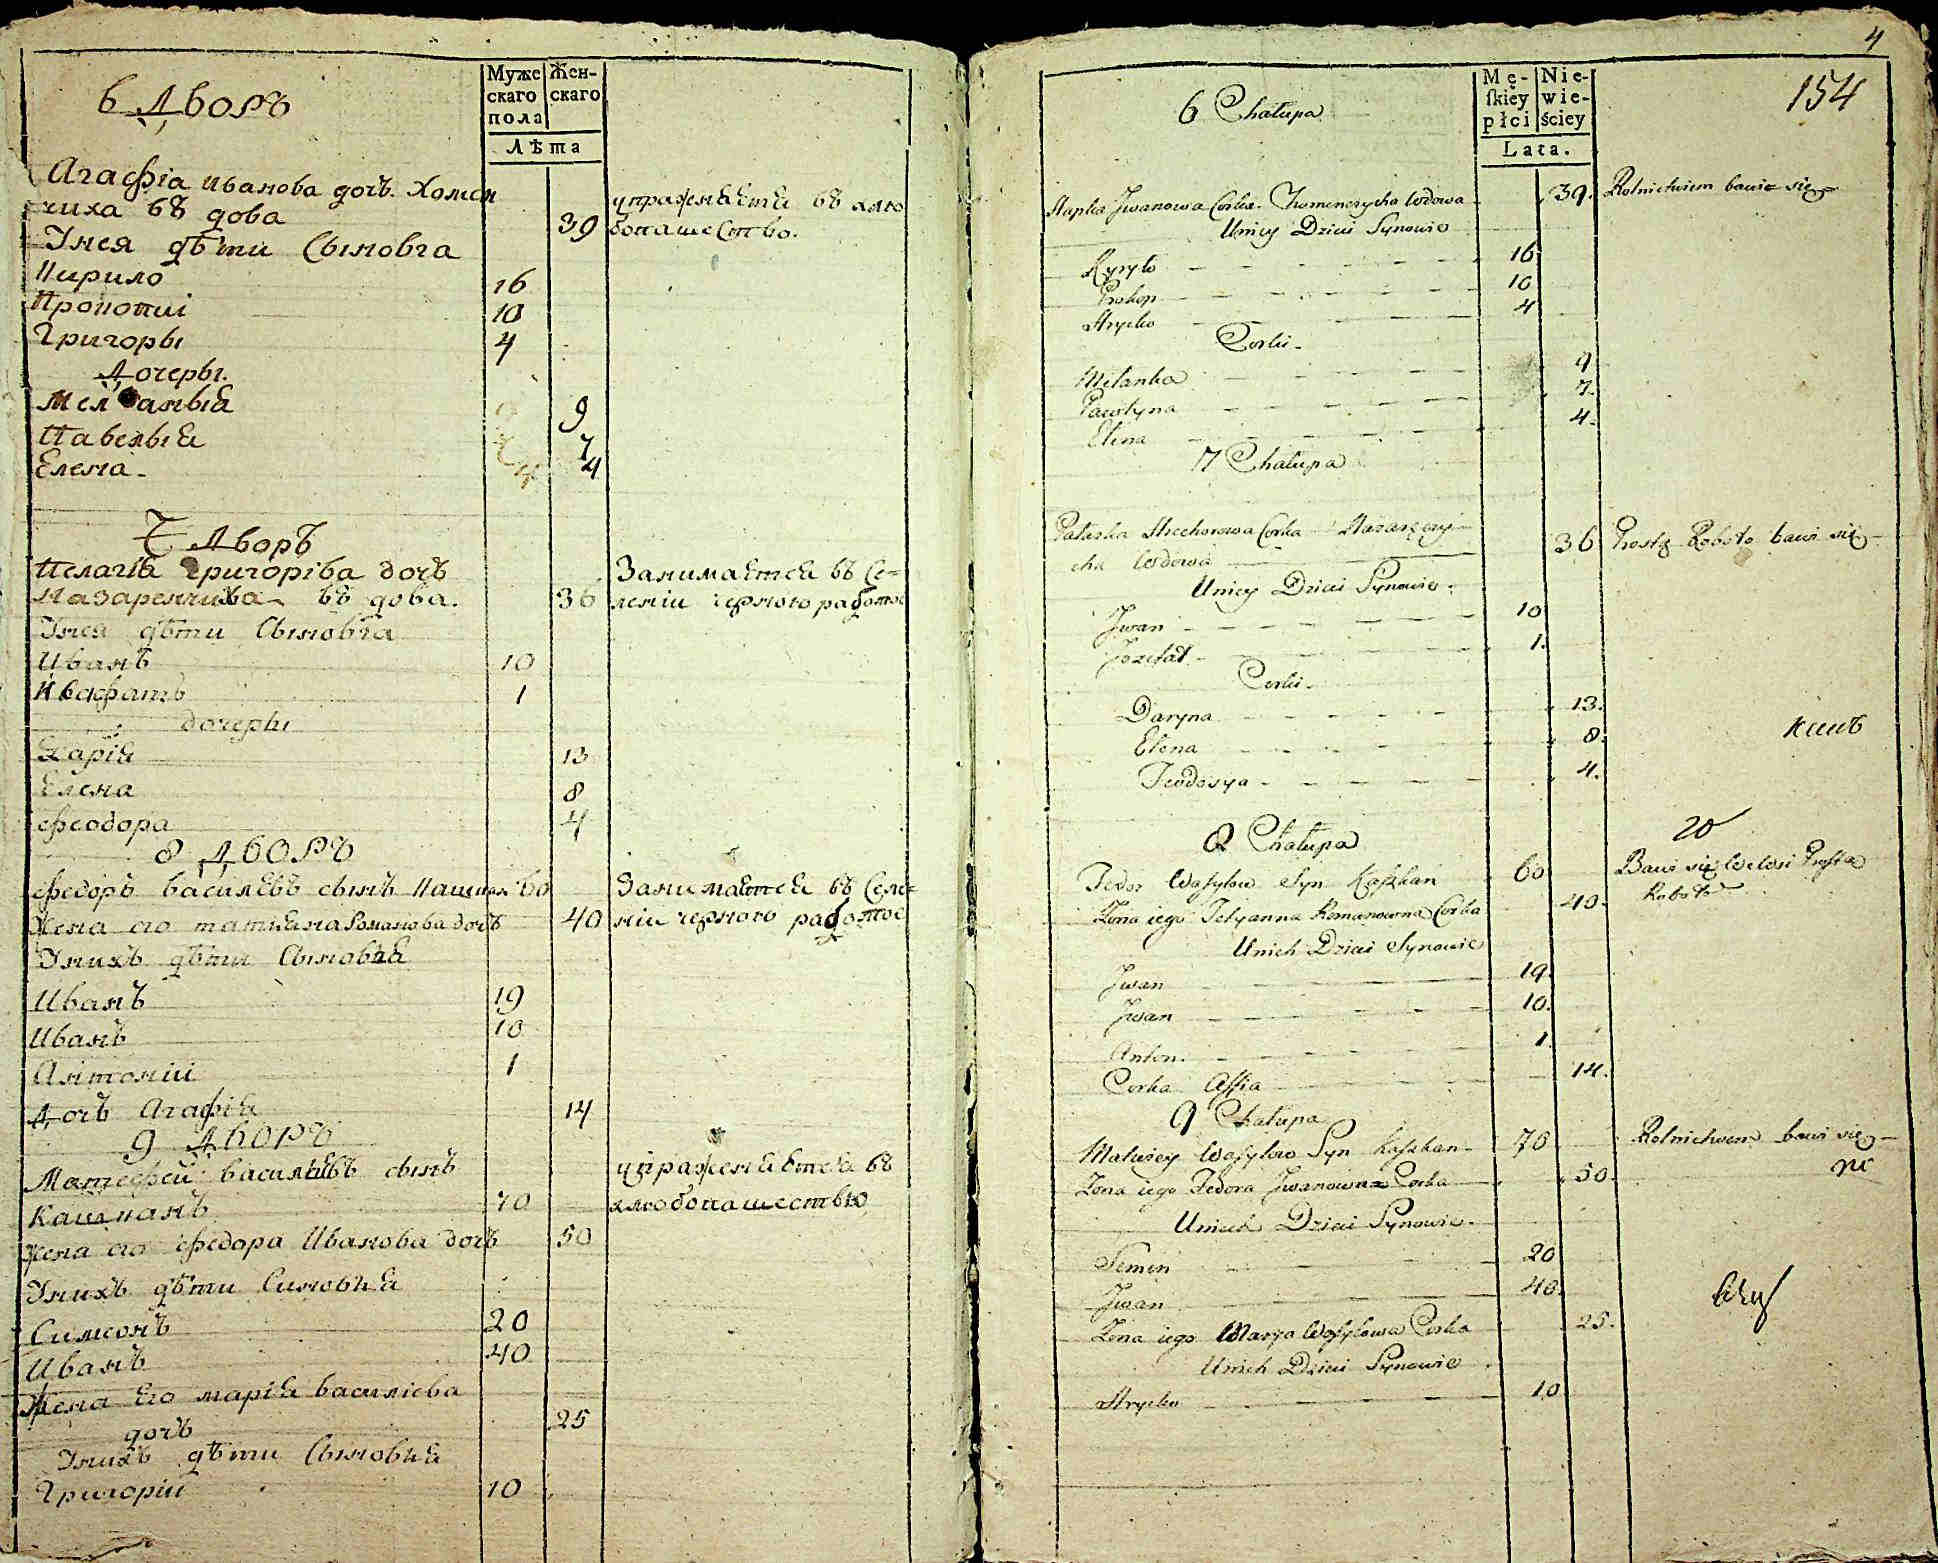 Муже
скаго
пола
Жен-
скаго
Лѣта
6 Дворъ
Агафіа Иванова дочъ Хомен
чиха въ дова 39 упражнаетса въ хлю
бопашество.
Унея дѣти Сыновга
Кирило 16
Прокопиі 10
Григоры 4
Дочеры.
Меланьıа 9
Павельıа 7
Елена 4
7 Дворъ
Пелагіа Григоріва дочъ Занимаетса въ Се=
Назаренчиха въ дова. 36 леніи черною работою
Унея дѣти Сыновга
Иванъ 10
Квафатъ 1
дочеры
Дарiа 13
Елена 8
Феодора 4
8 Дворъ
Федоръ Василевъ сынъ Кашкан 60 Занимаетса въ Селе-
Жена его татиана Романова дочъ 40 ніи черною работою
Унихъ дѣти Сыновıа
Иванъ 19
Иванъ 10
Антоній 1
Дочъ Агафіа 14
9 Дворъ
Матефей василıевъ сынъ упражнаетса въ
Кашканъ 70 хлюбопашествıю
жена его Федора Иванова дочъ 50
Унихъ дѣти Синовиа
Симеонъ 20
Иванъ 40
Жена Его маріа василıева
дочъ 25
Унихъ дѣти Сыновиа
Григорій 10
4
154
Mę-
ſkiey
płci
Nie-
wie-
ściey
Lata.
6 Chałupa
Hapka Jwanowa Corka Chomenczycha Wdowa 39. Rolnictwem bawi się
Uniey Dzieci Synowie
Kyryło 16.
Prokop 10
Hryćko 4
Corki
Melanka 9
Pawlyna 7.
Elena 4.
7 Chałupa
Palaska Hrehorowa Corka Nazaręczy
cha Wdowa 36 Prostą Robotą bawi się
Uniey Dzieci Synowie.
Jwan 10
Jozefat 1.
Corki
Daryna 13.
Elena 8.
Teodosya 4.
кинъ
8 Chałupa
20
Fedor Wasylow Syn Kaszkan 60 Bawi się We Wsi Prosta
Żona iego Tetyanna Romanowna Corka 40. Robota
Unich Dzieci Synowie
Jwan 19.
Jwan 10.
Anton 1
Corka Affia 14.
9 Chałupa
Matwiey Wasylow Syn Kaszkan 70 Rolnictwem bawi się
Żona iego Fedora Jwanowna Corka 50.
Unich Dzieci Synowie.
Semen 20
Jwan 40.
Żona iego Marya Wasylowa Corka 25.
Unich Dzieci Synowie
Hryćko 10